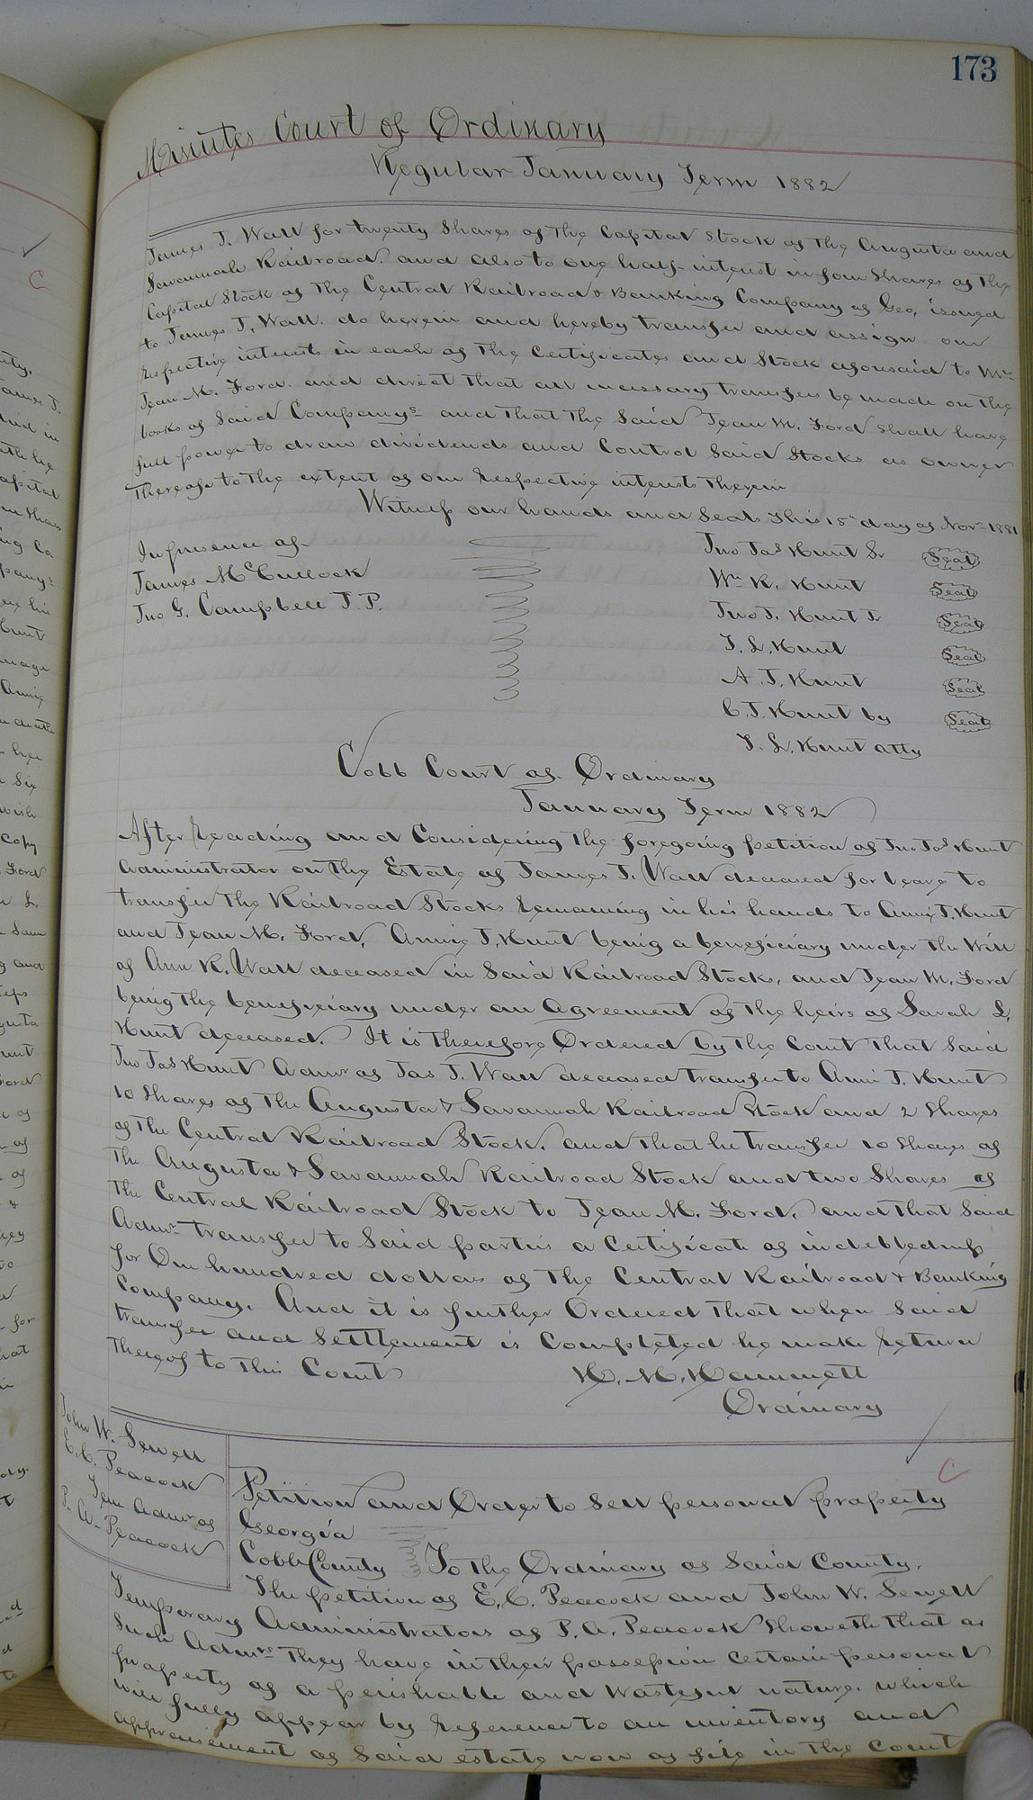 173
Minutes Court of Ordinary
Regular January Term 1882
James T. Wall for twenty Shares of the Capital Stock of the Augusta and
Savannah Railroad. and also to one half interest in four Shares of the
Capital Stock of The Central Railroad & Banking Company of Geo, issued
to James T. Wall. do herein and hereby transfer and assign our
respective interests in each of The Certificates and Stock aforesaid to Mrs
Jean M. Ford. and direct that all necessary transfers be made on the
books of Said Companys and that the said Jean M. Ford shall have
full power to draw dividends and Control Said Stocks as owner
Thereof to the extent of our respective interests therein
Witness our hands and Seals this 15th day of Nov. 1881
In presence of
James McCullock
Jno G. Campbell J.P.
Jno Jas Hunt Sr Seal
Wm R. Hunt Seal
Jno J. Hunt Jr Seal
J. L. Hunt Seal
A. J. Hunt Seal
C. J. Hunt by Seal
J. L. Hunt atty
Cobb Court of Ordinary
January Term 1882
After reading and Considering the foregoing petition of Jno Jas Hunt
Administrator on the Estate of James T. Wall deceased for leave to
transfer the Railroad Stocks remaining in his hands to Annie J. Hunt
and Jean M. Ford, Annie J. Hunt being a beneficiary under the Will
of Ann R. Wall deceased in Said Railroad Stocks, and Jean M. Ford
being the beneficiary under an agreement of the heirs of Sarah L.
Hunt deceased. It is therefore Ordered by the Court that Said
Jno Jas Hunt Admr of Jas T. Wall deceased transfer to Anni J. Hunt
10 Shares of the Augusta & Savannah Railroad Stock and 2 Shares
of the Central Railroad Stock. and that he transfer 10 Shares of
the Augusta & Savannah Railroad Stock and two Shares of
the Central Railroad Stock to Jean M. Ford. and that Said
Admr. transfer to Said parties a Certificate of indebtedness
for One hundred dollars of the Central Railroad & Banking
Company. And it is further Ordered that when said
transfer and settlement is Completed he make return
thereof to this Court
H. M. Hammett
Ordinary
John W. Sewell
E. C. Peacock
Tem Admr of
P. A. Peacock
C
Petition and Order to Sell personal property
Georgia
Cobb County To the Ordinary of Said County.
The petition of E. C. Peacock and John W. Sewell
Temporary Administrators of P. A. Peacock Showeth that as
Such Admrs They have in their possession Certain personal
property of a perishable and wasteful nature. which
will fully appear by reference to an inventory and
appraisement of said estate now of file in the Court